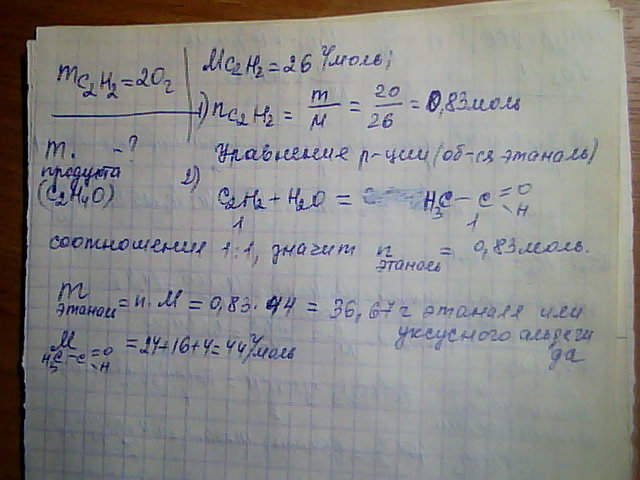 mC₂H₂ = 20г
MC₂H₂ = 26 г/моль;
1) nC₂H₂ = m/M = 20/26 = 0,83 моль
m. - ?
продукта
(C₂H₄O)
Уравнения р-ции (об-ся этаналь)
2) C₂H₂ + H₂O = H₃C - C =O -H
1 1
соотношение 1:1, значит n этаналь = 0,83 моль.
m этанал = n·M = 0,83·44 = 36,67 г этаналя или
уксусного альдеги
да
M H₃C-C=O-H = 24+16+4 = 44 г/моль